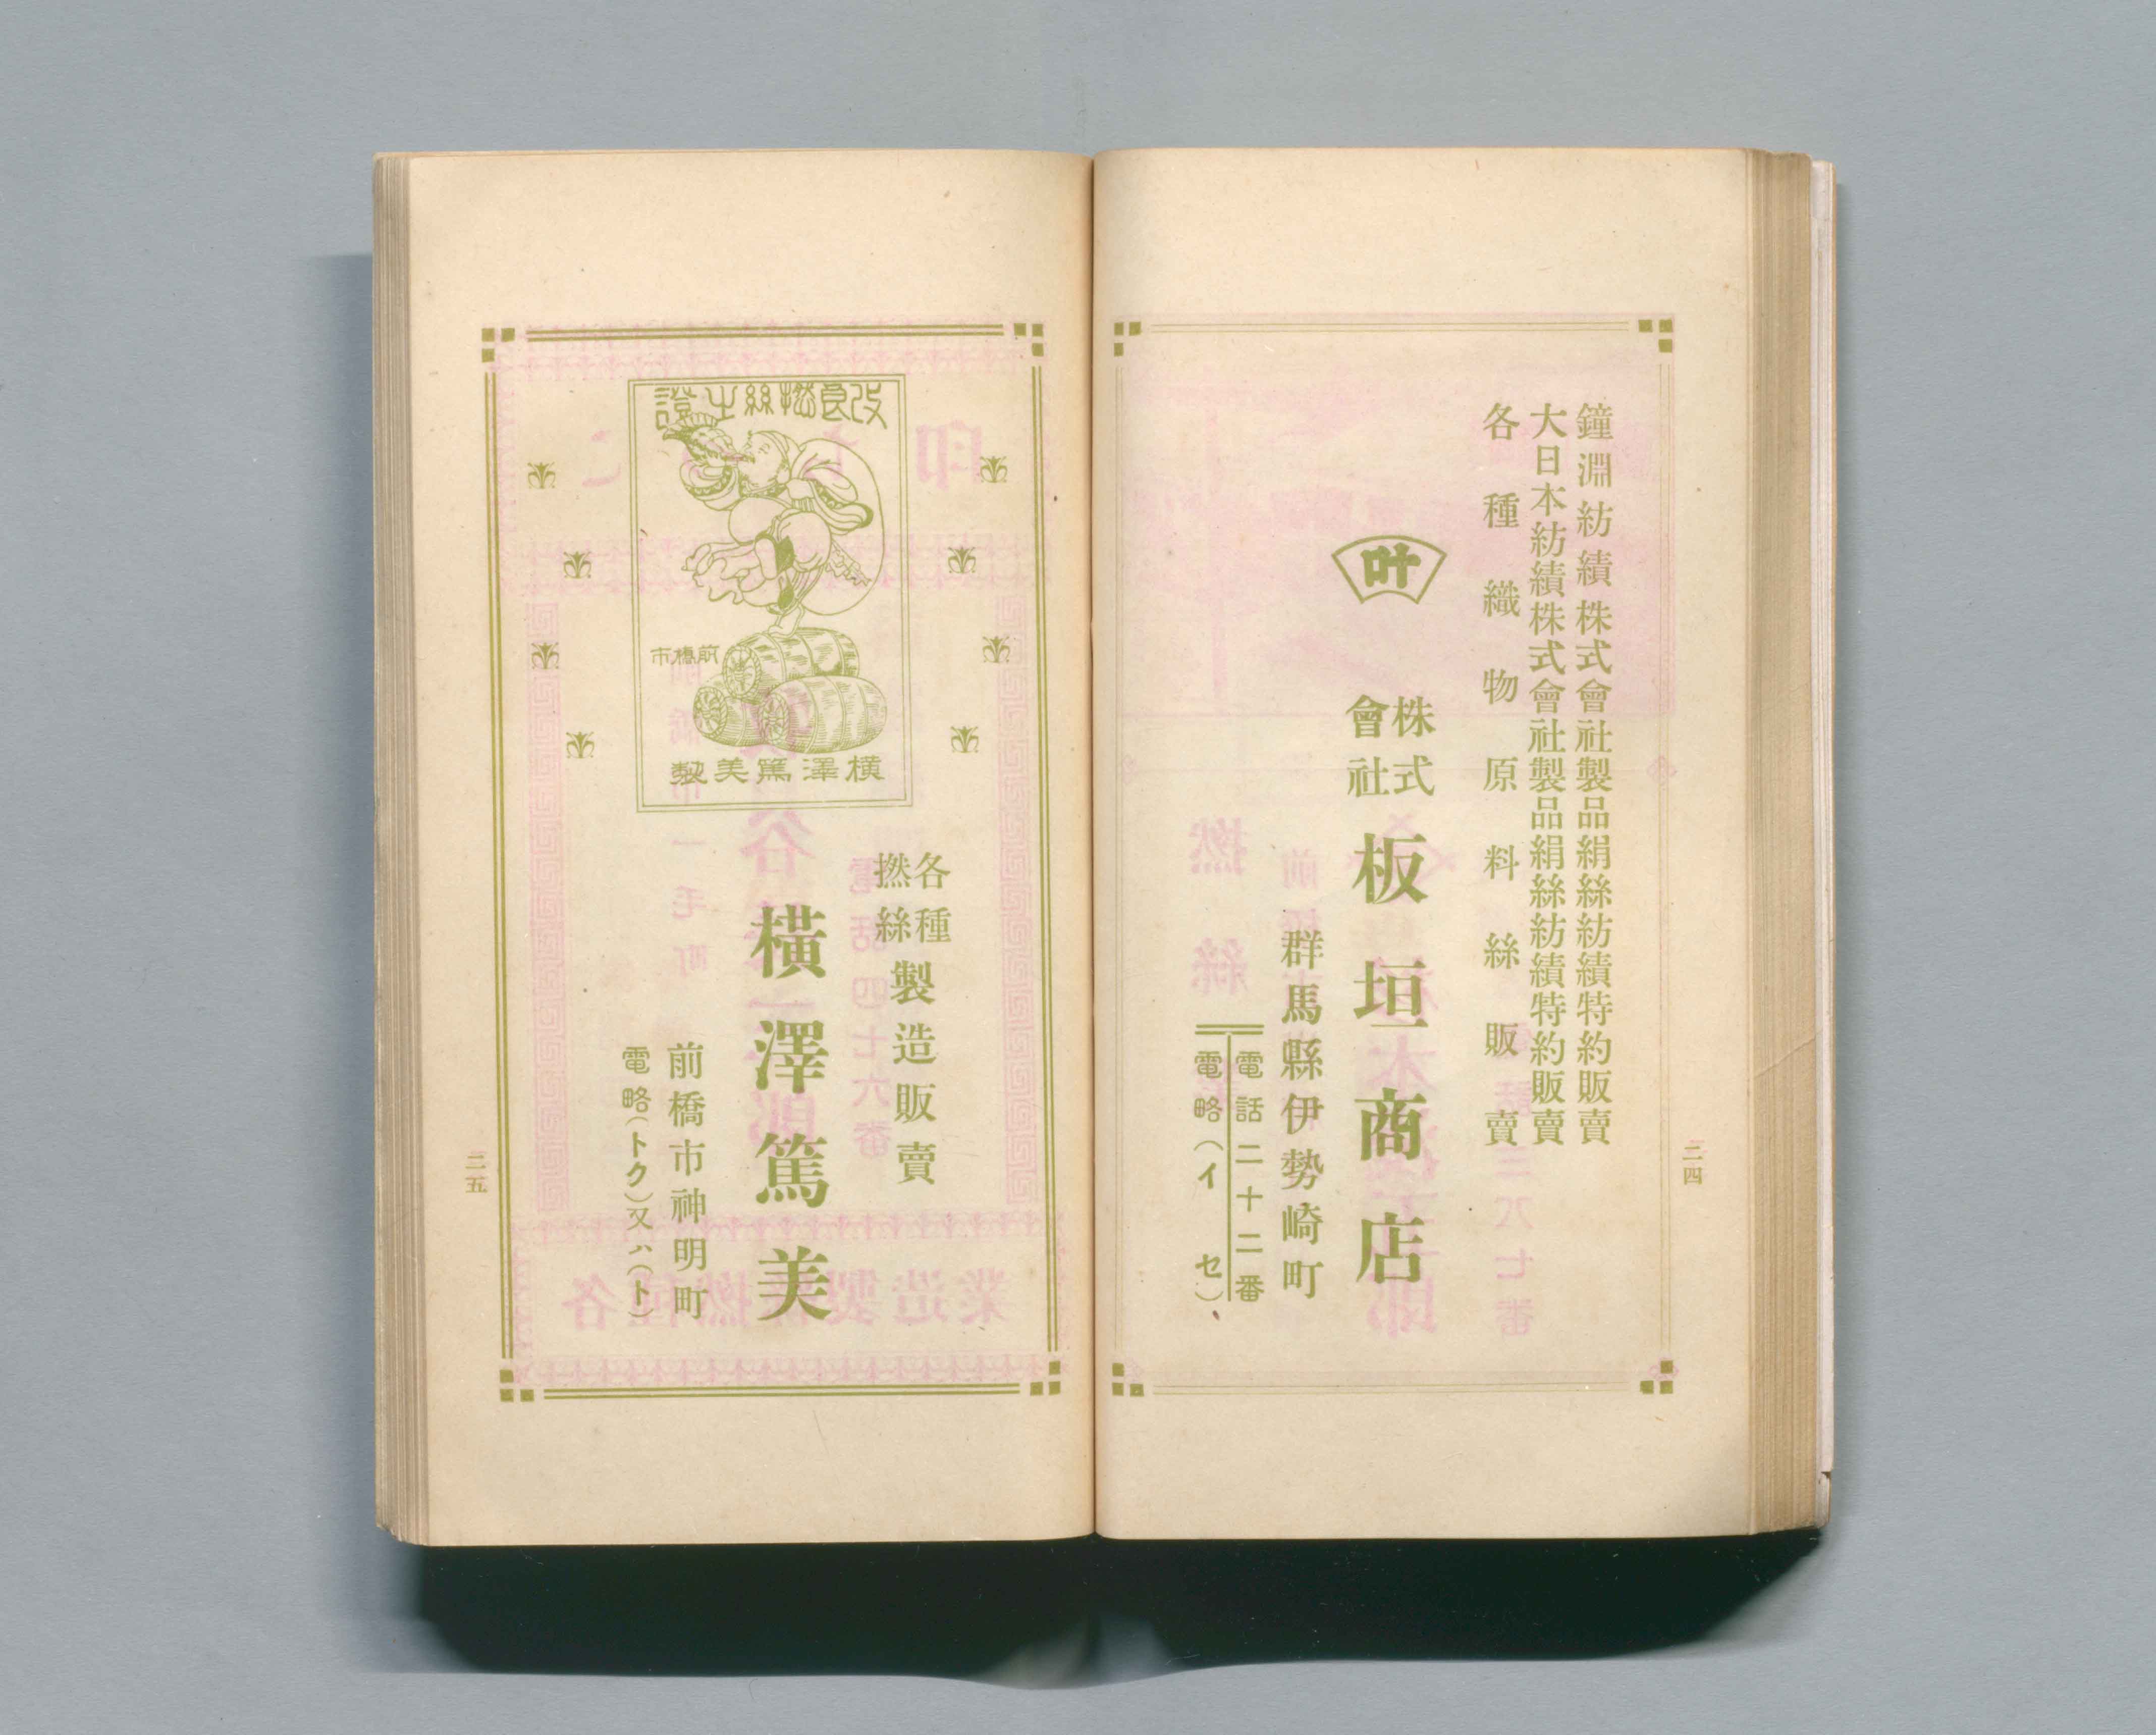 鐘淵紡績株式會社製品絹絲紡績特約販賣
大日本紡績株式會社製品絹絲紡績特約販賣
各種織物原料絲販賣
叶
株式會社 板垣商店
群馬縣伊勢崎町
電話二十二番
電略(イセ)
二四
改良撚絲之證
前橋市
横澤篤美製
各種撚絲製造販賣
横澤篤美
前橋市神明町
電略(トク)又ハ(ト)
二五